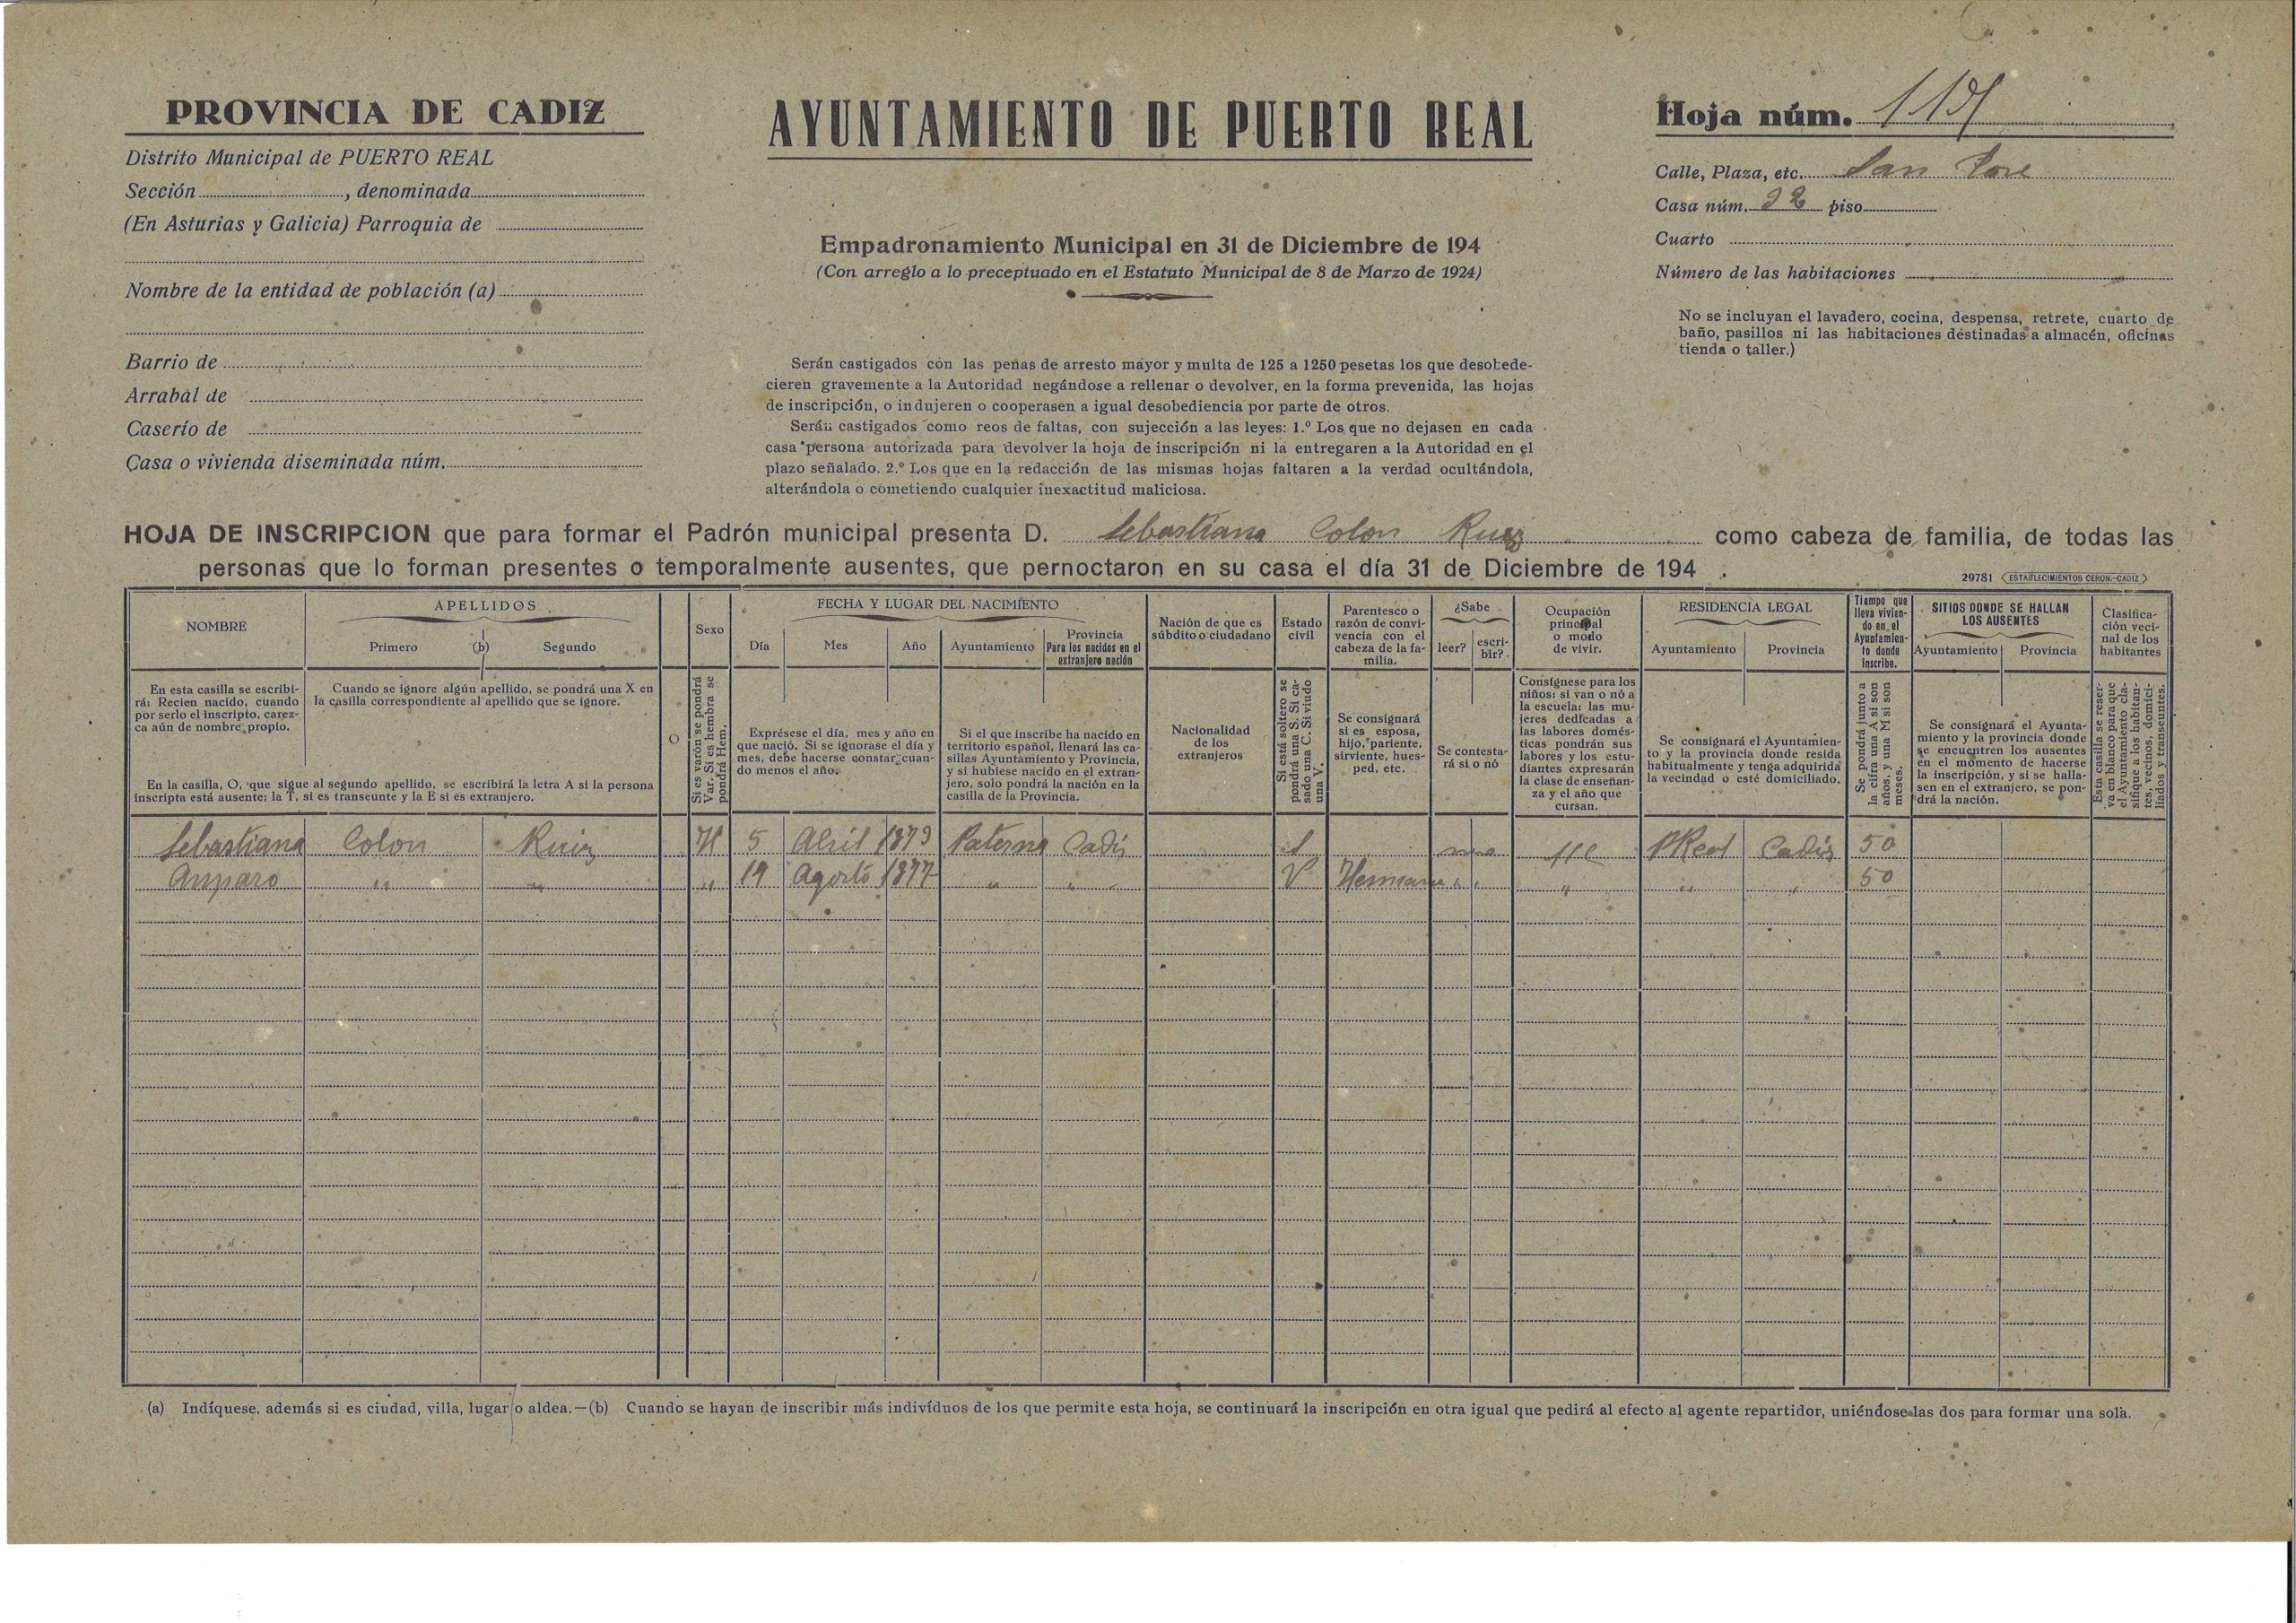 PROVINCIA DE CADIZ
Distrito Municipal de PUERTO REAL
Sección , denominada
(En Asturias y Galicia) Parroquia de
Nombre de la entidad de población (a)
Barrio de
Arrabal de
Caserío de
Casa o vivienda diseminada núm.
AYUNTAMIENTO DE PUERTO REAL
Empadronamiento Municipal en 31 de Diciembre de 194
(Con arreglo a lo preceptuado en el Estatuto Municipal de 8 de Marzo de 1924)
Serán castigados con las penas de arresto mayor y multa de 125 a 1250 pesetas los que desobede-
cieren gravemente a la Autoridad negándose a rellenar o devolver, en la forma prevenida, las hojas
de inscripción, o indujeren o cooperasen a igual desobediencia por parte de otros.
Serán castigados como reos de faltas, con sujección a las leyes: 1.º Los que no dejasen en cada
casa persona autorizada para devolver la hoja de inscripción ni la entregaren a la Autoridad en el
plazo señalado. 2.º Los que en la redacción de las mismas hojas faltaren a la verdad ocultándola,
alterándola o cometiendo cualquier inexactitud maliciosa.
Hoja núm.
Calle, Plaza, etc. San Jose
Casa núm. 92 piso
Cuarto
Número de las habitaciones
No se incluyan el lavadero, cocina, despensa, retrete, cuarto de
baño, pasillos ni las habitaciones destinadas a almacén, oficinas
tienda o taller.)
HOJA DE INSCRIPCION que para formar el Padrón municipal presenta D. Sebastiana Colon Ruiz como cabeza de familia, de todas las
personas que lo forman presentes o temporalmente ausentes, que pernoctaron en su casa el día 31 de Diciembre de 194 .
29781 (ESTABLECIMIENTOS CERON.-CADIZ)
NOMBRE
APELLIDOS
Primero (b) Segundo
O
Sexo
FECHA Y LUGAR DEL NACIMIENTO
Día Mes Año Ayuntamiento
Provincia
Para los nacidos en el
extranjero nación
Nación de que es
súbdito o ciudadano
Estado
civil
Parentesco o
razón de convi-
vencia con el
cabeza de la fa-
milia.
¿Sabe
leer? escri-
bir?
Ocupación
principal
o modo
de vivir.
RESIDENCIA LEGAL
Ayuntamiento Provincia
Tiempo que
lleva vivien-
do en el
Ayuntamien-
to donde
inscribe.
SITIOS DONDE SE HALLAN
LOS AUSENTES
Ayuntamiento Provincia
Clasifica-
ción veci-
nal de los
habitantes
En esta casilla se escribi-
rá: Recien nacido, cuando
por serlo el inscripto, carez-
ca aún de nombre propio.
Cuando se ignore algún apellido, se pondrá una X en
la casilla correspondiente al apellido que se ignore.
En la casilla, O, que sigue al segundo apellido, se escribirá la letra A si la persona
inscripta está ausente; la T, si es transeunte y la E si es extranjero.
Si es varón se pondrá
Var. Si es hembra se
pondrá Hem.
Exprésese el día, mes y año en
que nació. Si se ignorase el día y
mes, debe hacerse constar cuan-
do menos el año.
Si el que inscribe ha nacido en
territorio español, llenará las ca-
sillas Ayuntamiento y Provincia,
y si hubiese nacido en el extran-
jero, solo pondrá la nación en la
casilla de la Provincia.
Nacionalidad
de los
extranjeros
Si está soltero se
pondrá una S. Si ca-
sado una C. Si viudo
una V.
Se consignará
si es esposa,
hijo, pariente,
sirviente, hues-
ped, etc.
Se contesta-
rá si o nó
Consígnese para los
niños: si van o nó a
la escuela: las mu-
jeres dedicadas a
las labores domés-
ticas pondrán sus
labores y los estu-
diantes expresarán
la clase de enseñan-
za y el año que
cursan.
Se consignará el Ayuntamien-
to y la provincia donde resida
habitualmente y tenga adquirida
la vecindad o esté domiciliado.
Se pondrá junto a
la cifra una A si son
años, y una M si son
meses.
Se consignará el Ayunta-
miento y la provincia donde
se encuentren los ausentes
en el momento de hacerse
la inscripción, y si se halla-
sen en el extranjero, se pon-
drá la nación.
Esta casilla se reser-
va en blanco para que
el Ayuntamiento cla-
sifique a los habitan-
tes, vecinos, domici-
liados y transeuntes.
Sebastiana Colon Ruiz H 5 Abril 1873 Paterna Cadiz S PReal Cadiz 50
Amparo " " " 19 Agosto 1877 " " V Hermana " " " " " 50
(a) Indíquese. además si es ciudad, villa, lugar o aldea.—(b) Cuando se hayan de inscribir más indivíduos de los que permite esta hoja, se continuará la inscripción en otra igual que pedirá al efecto al agente repartidor, uniéndose las dos para formar una sola.